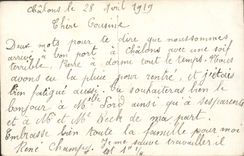 Châlons le 28 Avril 1919
Chère Cousine
Deux mots pour te dire que nous sommes
arrivés à bon port à Châlons avec une soif
terrible, René a dormi tout le temps. Nous
avons eu la pluie pour rentrer, et j'étais
bien fatigué aussi. Tu souhaiteras bien le
bonjour à Mlle Sord ainsi qu'à ses parents
et à Mr et Mme Beck de ma part.
Embrasse bien toute la famille pour moi
René Champs. J'aime sauve travailler il
est 1h